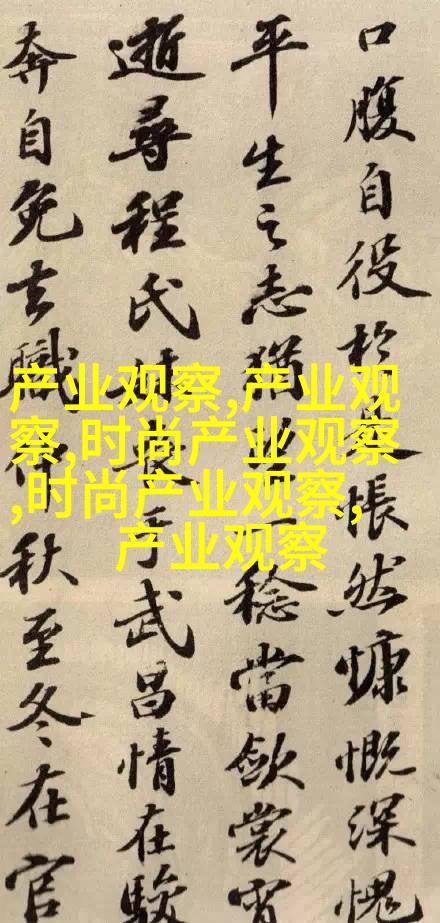 口腹自役於是悵然慷慨深愧
平生之志猶望一稔當歛裳宵
逝尋程氏妹喪于武昌情在駿
奔自免去職仲秋至冬在官
产业观察,产业观
察,时尚产业观察
,时尚产业观察,
产业观察